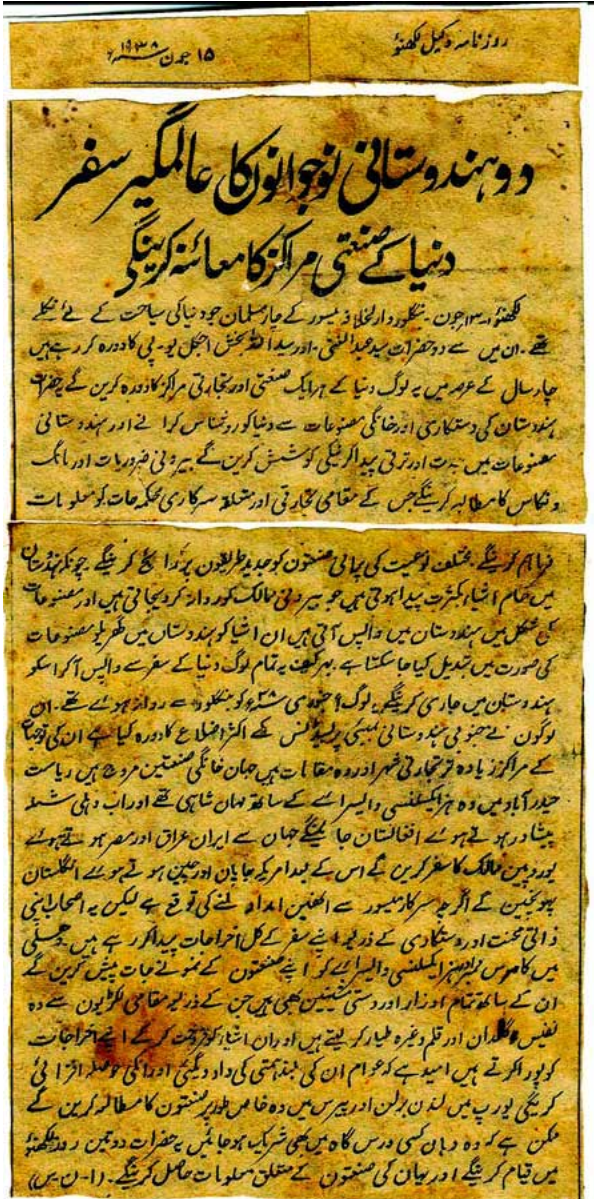 روزنامہ وکیل لکھنؤ
۱۵ جون ۱۹۳۸ء
دو ہندوستانی نوجوانوں کا عالمگیر سفر
دنیا کے صنعتی مراکز کا معائنہ کرینگے
لکھنؤ۔ ۱۳ جون۔ بنگلور دارلخلافہ میسور کے چار مسلمان جو دنیا کی سیاحت کے لئے نکلے
تھے۔ ان میں سے دو حضرات سید عبدالغنی۔ اور سید اللہ بخش آجکل یو۔پی کا دورہ کر رہے ہیں
چار سال کے عرصہ میں یہ لوگ دنیا کے ہر ایک صنعتی اور تجارتی مراکز کا دورہ کریں گے یہ حضرات
ہندوستان کی دستکاری اور خانگی مصنوعات سے دنیا کو روشناس کرانے اور ہندوستانی
مصنوعات میں جدت اور ترقی پیدا کرنیکی کوشش کریں گے بیرونی ضروریات اور مانگ
و نکاس کا مطالبہ کرینگے جس کے مقامی تجارتی اور متعلقہ سرکاری محکمہ جات کو معلومات
فراہم کرینگے۔ مختلف نوعیت کی پرانی صنعتوں کو جدید طریقوں پر رائج کرینگے۔ چونکہ ہندوستان
میں خام اشیاء بکثرت پیدا ہوتی ہیں جو بیرونی ممالک کو روانہ کردیجاتی ہیں اور مصنوعات
کی شکل میں ہندوستان میں واپس آتی ہیں ان اشیا کو ہندوستاں میں گھریلو مصنوعات
کی صورت میں تبدیل کیا جاسکتا ہے۔ بہر کیف یہ تمام لوگ دنیا کے سفر سے واپس آکر اسکو
ہندوستان میں جاری کرینگے۔ یہ لوگ جنوری ۳۸ء کو بنگلور سے روانہ ہوے تھے۔ ان
لوگوں نے جنوبی ہندوستانی بمبئی پریسیڈنسی کے اکثر اضلاع کا دورہ کیا ہے ان کی توجہات
کے مراکز زیادہ تر تجارتی شہر اور وہ مقامات ہیں جہاں خانگی صنعتیں مروج ہیں ریاست
حیدرآباد میں وہ ہز ایکسلنسی وایسراے کے ساتھ مہمان شاہی تھے اور اب دہلی شملہ
پیشاور ہوتے ہوے افغانستان جائینگے جہاں سے ایران عراق اور مصر ہوتے ہوے
یوروپین ممالک کا سفر کریں گے اس کے بعد امریکہ جاپان اور چین ہوتے ہوے انگلستان
پہونچیں گے اگرچہ سرکار میسور سے انھیں امداد ملنے کی توقع ہے لیکن یہ اصحاب اپنی
ذاتی محنت اور دستکاری کے ذریعہ اپنے سفر کے کل اخراجات پیدا کر رہے ہیں۔ دہلی
میں ہز ایکسلنسی وایسراے کو اپنے صنعتوں کے نمونے جات پیش کریں گے
ان کے ساتھ تمام اوزار اور دستی مشینیں بھی ہیں جن کے ذریعہ مقامی لکڑیوں سے وہ
نفیس گلدان اور قلم وغیرہ طیار کرلیتے ہیں اور ان اشیاء کو فروخت کرکے اپنے اخراجات
کو پورا کرتے ہیں امید ہے کہ عوام ان کی بلند ہمتی کی داد دیگی اور انکی حوصلہ افزائی
کریگی یورپ میں لندن برلن اور پیرس میں وہ خاص طور پر صنعتوں کا مطالعہ کریں گے
ممکن ہے کہ وہ وہاں کسی درس گاہ میں بھی شریک ہو جائیں یہ حضرات دو تین روز لکھنؤ
میں قیام کرینگے اور یہاں کی صنعتوں کے متعلق معلومات حاصل کرینگے۔ (ا۔ن۔س)